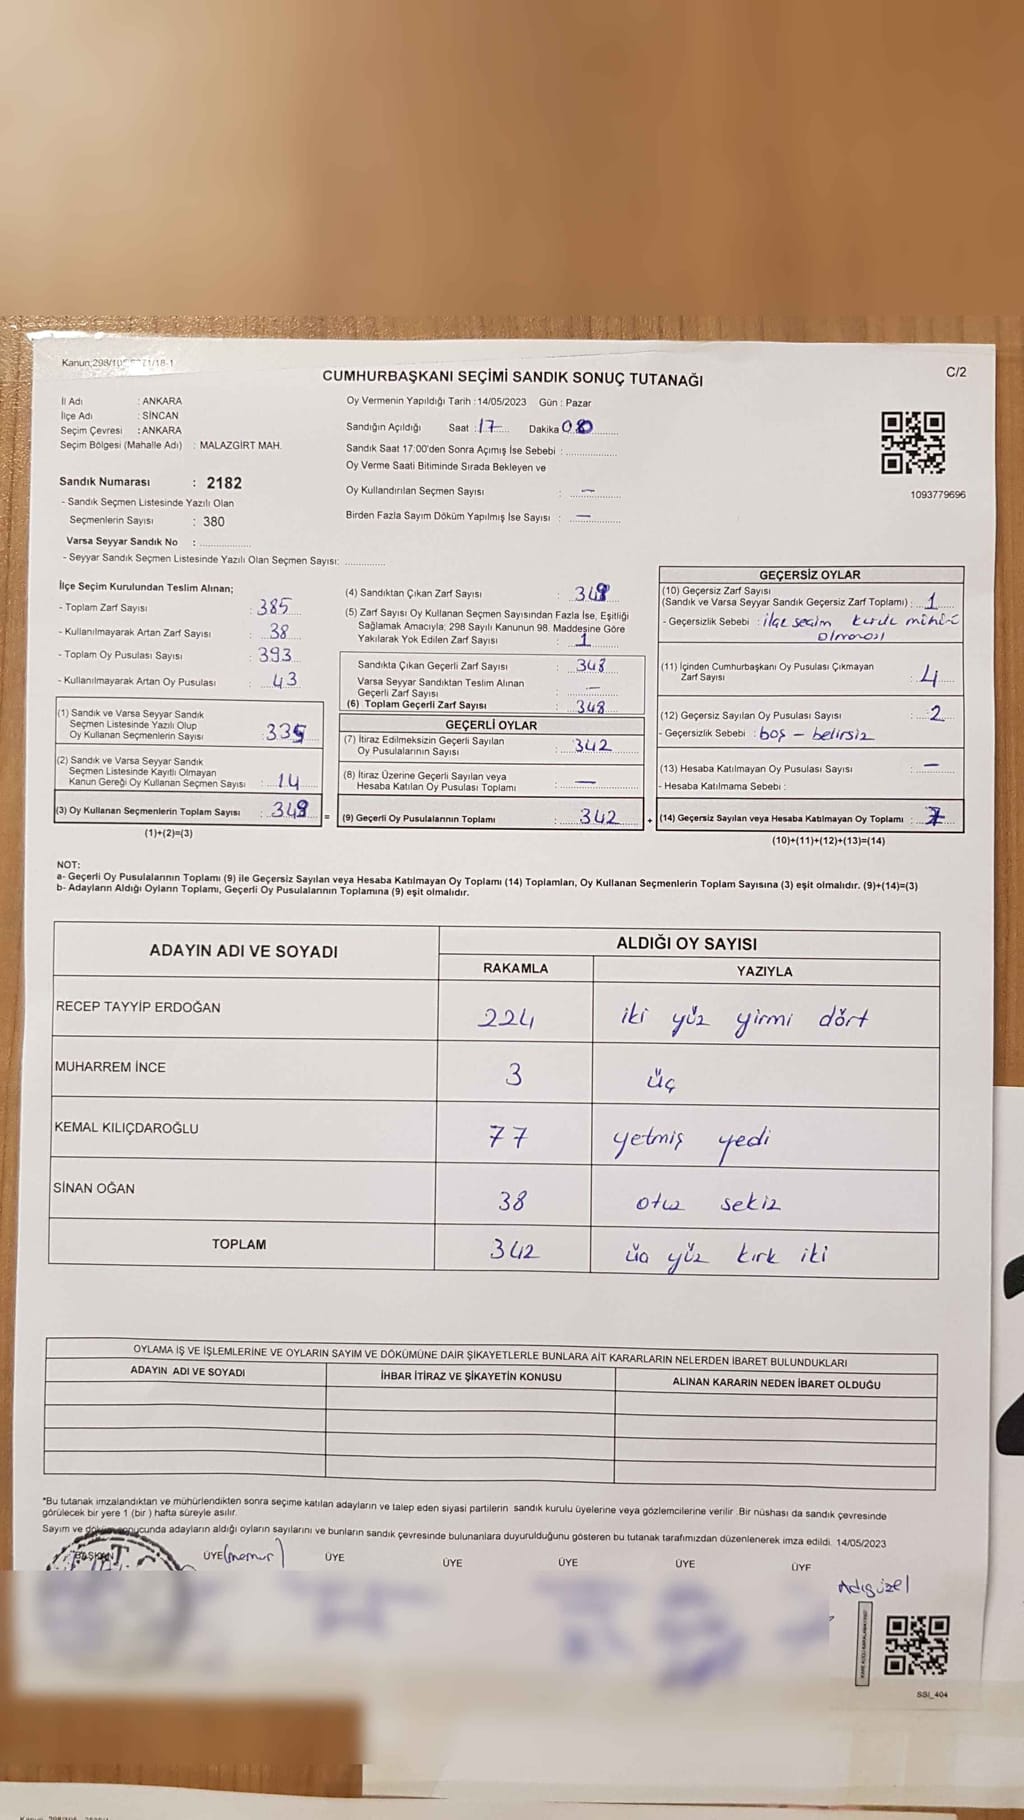 C/2
CUMHURBAŞKANI SEÇİMİ SANDIK SONUÇ TUTANAĞI
İl Adı : ANKARA
İlçe Adı : SİNCAN
Seçim Çevresi : ANKARA
Seçim Bölgesi (Mahalle Adı) : MALAZGİRT MAH.
Sandık Numarası : 2182
- Sandık Seçmen Listesinde Yazılı Olan
Seçmenlerin Sayısı : 380
Varsa Seyyar Sandık No :
- Seyyar Sandık Seçmen Listesinde Yazılı Olan Seçmen Sayısı:
Oy Vermenin Yapıldığı Tarih :14/05/2023 Gün : Pazar
Sandığın Açıldığı Saat : 17 Dakika
Sandık Saat 17:00'den Sonra Açımış İse Sebebi :
Oy Verme Saati Bitiminde Sırada Bekleyen ve
Oy Kullandırılan Seçmen Sayısı : —
Birden Fazla Sayım Döküm Yapılmış İse Sayısı : —
1093779696
İlçe Seçim Kurulundan Teslim Alınan;
- Toplam Zarf Sayısı : 385
- Kullanılmayarak Artan Zarf Sayısı : 38
- Toplam Oy Pusulası Sayısı : 393
- Kullanılmayarak Artan Oy Pusulası : 43
(1) Sandık ve Varsa Seyyar Sandık
Seçmen Listesinde Yazılı Olup
Oy Kullanan Seçmenlerin Sayısı : 335
(2) Sandık ve Varsa Seyyar Sandık
Seçmen Listesinde Kayıtlı Olmayan
Kanun Gereği Oy Kullanan Seçmen Sayısı : 14
(3) Oy Kullanan Seçmenlerin Toplam Sayısı : 349
(1)+(2)=(3)
(4) Sandıktan Çıkan Zarf Sayısı : 349
(5) Zarf Sayısı Oy Kullanan Seçmen Sayısından Fazla İse, Eşitliği
Sağlamak Amacıyla; 298 Sayılı Kanunun 98. Maddesine Göre
Yakılarak Yok Edilen Zarf Sayısı : 1
Sandıkta Çıkan Geçerli Zarf Sayısı : 348
Varsa Seyyar Sandıktan Teslim Alınan
Geçerli Zarf Sayısı : —
(6) Toplam Geçerli Zarf Sayısı : 348
GEÇERLİ OYLAR
(7) İtiraz Edilmeksizin Geçerli Sayılan
Oy Pusulalarının Sayısı : 342
(8) İtiraz Üzerine Geçerli Sayılan veya
Hesaba Katılan Oy Pusulası Toplamı : —
= (9) Geçerli Oy Pusulalarının Toplamı : 342 +
GEÇERSİZ OYLAR
(10) Geçersiz Zarf Sayısı
(Sandık ve Varsa Seyyar Sandık Geçersiz Zarf Toplamı) : 1
- Geçersizlik Sebebi : ilçe seçim kurulu mührü
olmaması
(11) İçinden Cumhurbaşkanı Oy Pusulası Çıkmayan
Zarf Sayısı : 4
(12) Geçersiz Sayılan Oy Pusulası Sayısı : 2
- Geçersizlik Sebebi : boş - belirsiz
(13) Hesaba Katılmayan Oy Pusulası Sayısı : —
- Hesaba Katılmama Sebebi :
(14) Geçersiz Sayılan veya Hesaba Katılmayan Oy Toplamı : 7
(10)+(11)+(12)+(13)=(14)
NOT:
a- Geçerli Oy Pusulalarının Toplamı (9) ile Geçersiz Sayılan veya Hesaba Katılmayan Oy Toplamı (14) Toplamları, Oy Kullanan Seçmenlerin Toplam Sayısına (3) eşit olmalıdır. (9)+(14)=(3)
b- Adayların Aldığı Oyların Toplamı, Geçerli Oy Pusulalarının Toplamına (9) eşit olmalıdır.
ADAYIN ADI VE SOYADI ALDIĞI OY SAYISI
RAKAMLA YAZIYLA
RECEP TAYYİP ERDOĞAN 224 iki yüz yirmi dört
MUHARREM İNCE 3 üç
KEMAL KILIÇDAROĞLU 77 yetmiş yedi
SİNAN OĞAN 38 otuz sekiz
TOPLAM 342 üç yüz kırk iki
OYLAMA İŞ VE İŞLEMLERİNE VE OYLARIN SAYIM VE DÖKÜMÜNE DAİR ŞİKAYETLERLE BUNLARA AİT KARARLARIN NELERDEN İBARET BULUNDUKLARI
ADAYIN ADI VE SOYADI İHBAR İTİRAZ VE ŞİKAYETİN KONUSU ALINAN KARARIN NEDEN İBARET OLDUĞU
*Bu tutanak imzalandıktan ve mühürlendikten sonra seçime katılan adayların ve talep eden siyasi partilerin sandık kurulu üyelerine veya gözlemcilerine verilir .Bir nüshası da sandık çevresinde
görülecek bir yere 1 (bir ) hafta süreyle asılır.
Sayım ve döküm sonucunda adayların aldığı oyların sayılarını ve bunların sandık çevresinde bulunanlara duyurulduğunu gösteren bu tutanak tarafımızdan düzenlenerek imza edildi. 14/05/2023
BAŞKAN ÜYE (memur) ÜYE ÜYE ÜYE ÜYE ÜYE
Adıgüzel
SSI_404